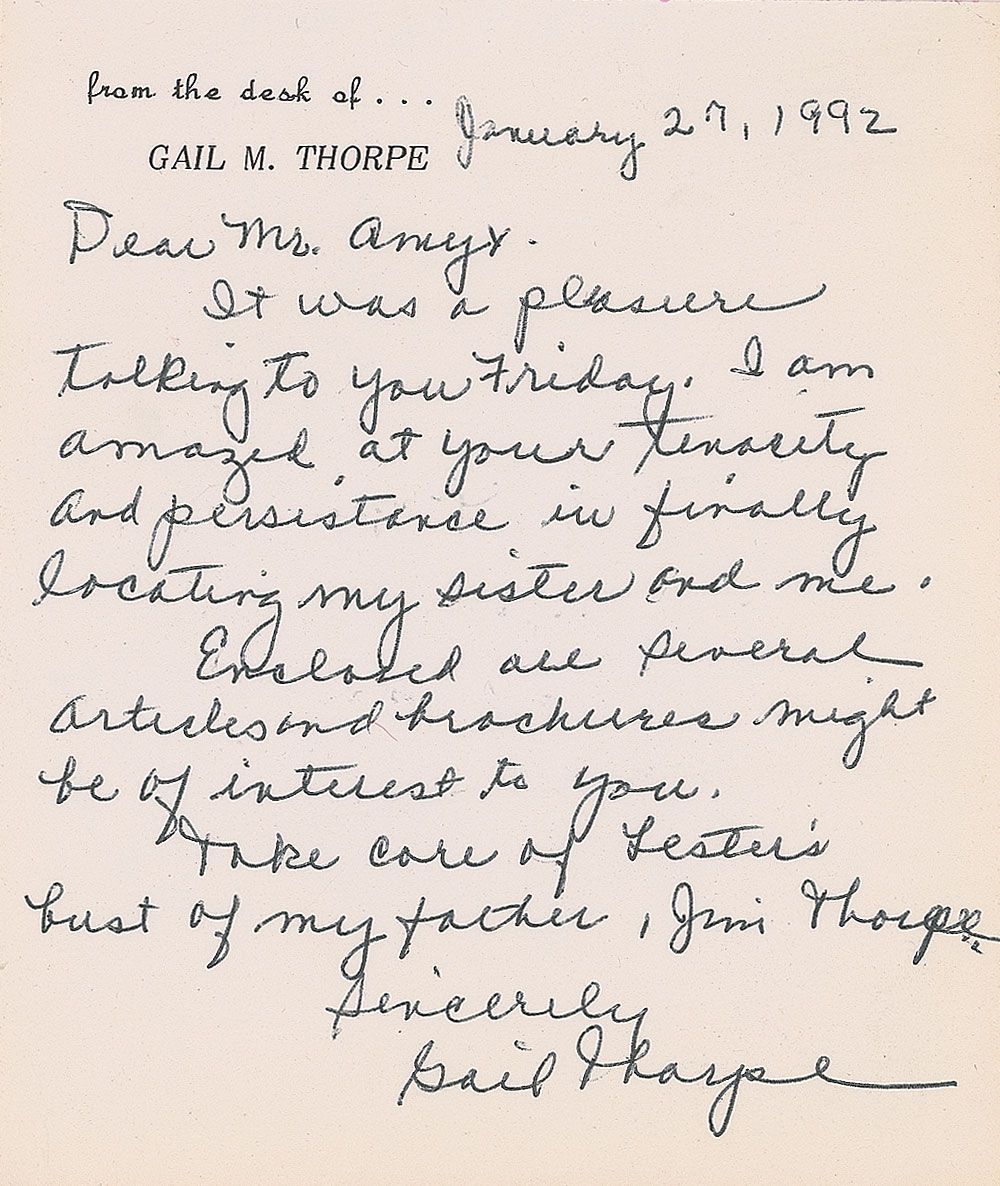 from the desk of . . .
GAIL M. THORPE
January 27, 1992
Dear Mr. Amyx.
It was a pleasure
talking to you Friday. I am
amazed at your tenacity
and persistance in finally
locating my sister and me.
Enclosed are several
articles and brochures might
be of interest to you.
Take care of Lester's
bust of my father, Jim Thorpe
Sincerely
Gail Thorpe